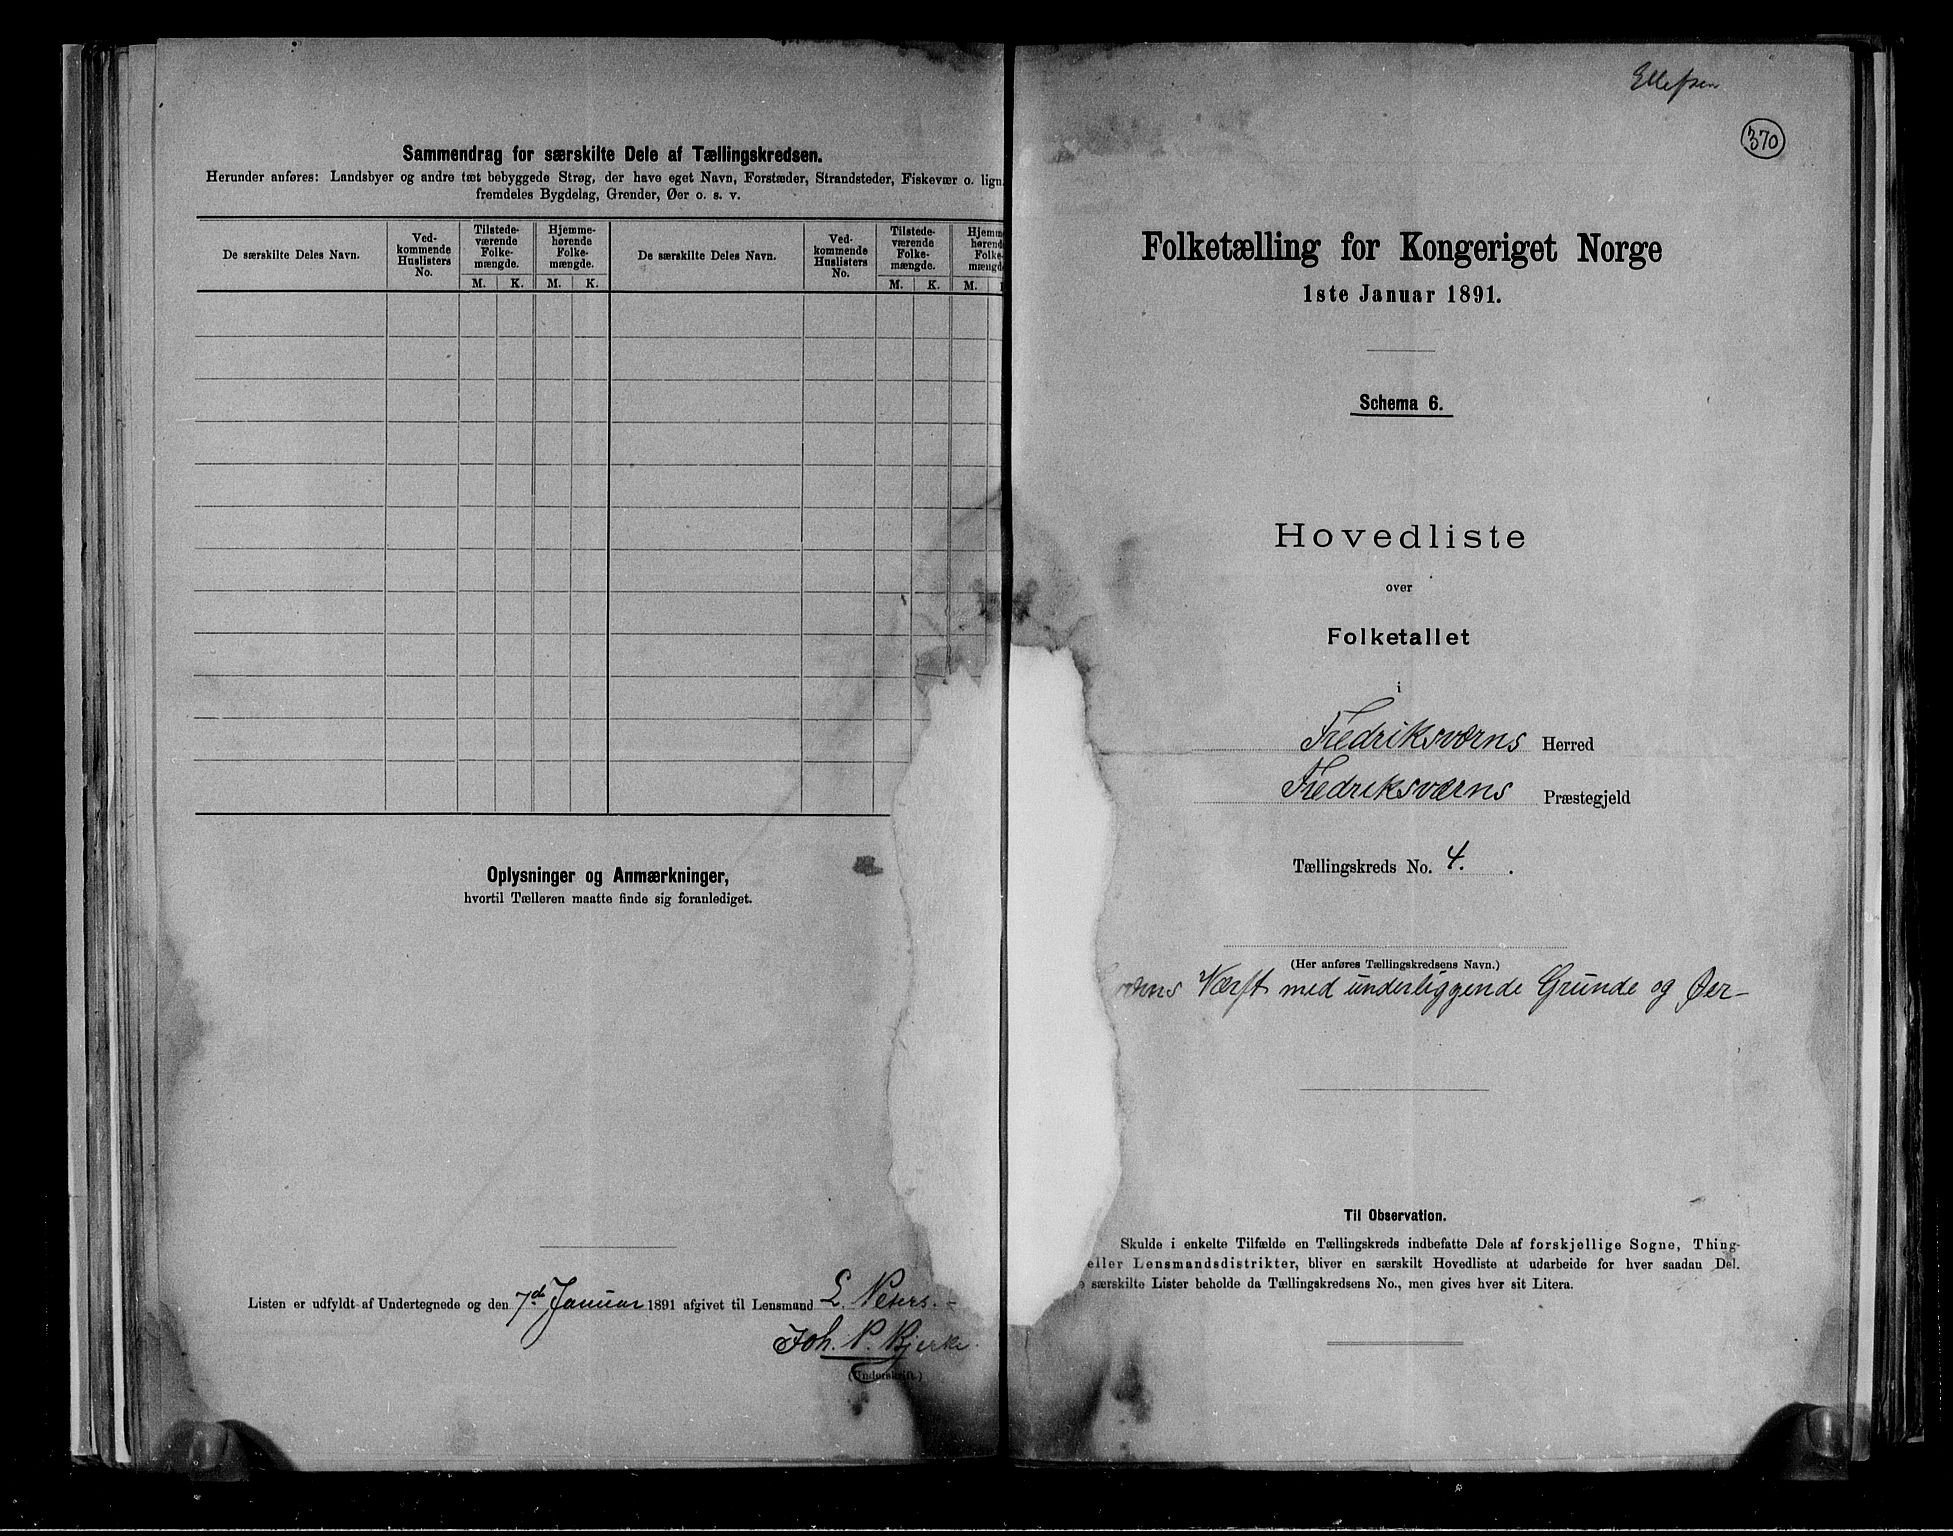 Sammendrag for særskilte Dele af Tællingskredsen.
Herunder anføres: Landsbyer og andre tæt bebyggede Strøg, der have eget Navn, Forstæder, Strandsteder, Fiskevær o. lign.
fremdeles Bygdelag, Grender, Øer o. s. v.
De særskilte Deles Navn.
Ved-
kommende
Huslisters
No.
Tilstede-
værende
Folke-
mængde.
Hjemme-
hørende
Folke-
mængde.
De særskilte Deles Navn.
Ved-
kommende
Huslisters
No.
Tilstede-
værende
Folke-
mængde.
Hjemme
hørend
Folke
mængd
M. K. M. K. M. K. M.
Oplysninger og Anmærkninger,
hvortil Tælleren maatte finde sig foranlediget.
Listen er udfyldt af Undertegnede og den 7de Januar 1891 afgivet til Lensmand L. Peters.
Joh. P. Bjerke.
(Underskrift.)
Ellefsen
370
Folketælling for Kongeriget Norge
1ste Januar 1891.
Schema 6.
Hovedliste
over
Folketallet
i
Fredriksværns Herred
Fredriksværns Præstegjeld
Tællingskreds No. 4.
(Her anføres Tællingskredsens Navn.)
værns Værft med underliggende Grunde og Øer
Til Observation.
Skulde i enkelte Tilfælde en Tællingskreds indbefatte Dele af forskjellige Sogne, Thing-
eller Lensmandsdistrikter, bliver en særskilt Hovedliste at udarbeide for hver saadan Del.
særskilte Lister beholde da Tællingskredsens No., men gives hver sit Litera.